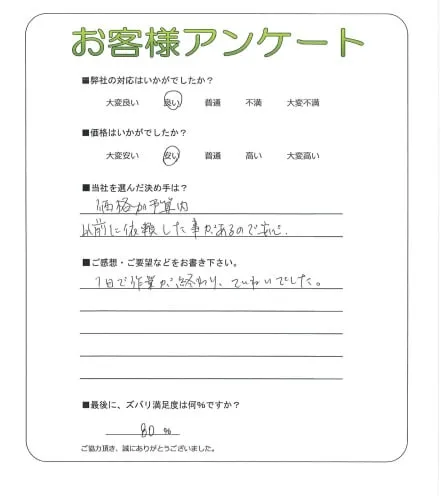 お客様アンケート
■弊社の対応はいかがでしたか?
大変良い 良い 普通 不満 大変不満
■価格はいかがでしたか?
大変安い 安い 普通 高い 大変高い
■当社を選んだ決め手は?
価格が予算内
以前に依頼した事があるので安心.
■ご感想・ご要望などをお書き下さい。
1日で作業が終わり、ていねいでした。
■最後に、ズバリ満足度は何%ですか?
80 %
ご協力頂き、誠にありがとうございました。